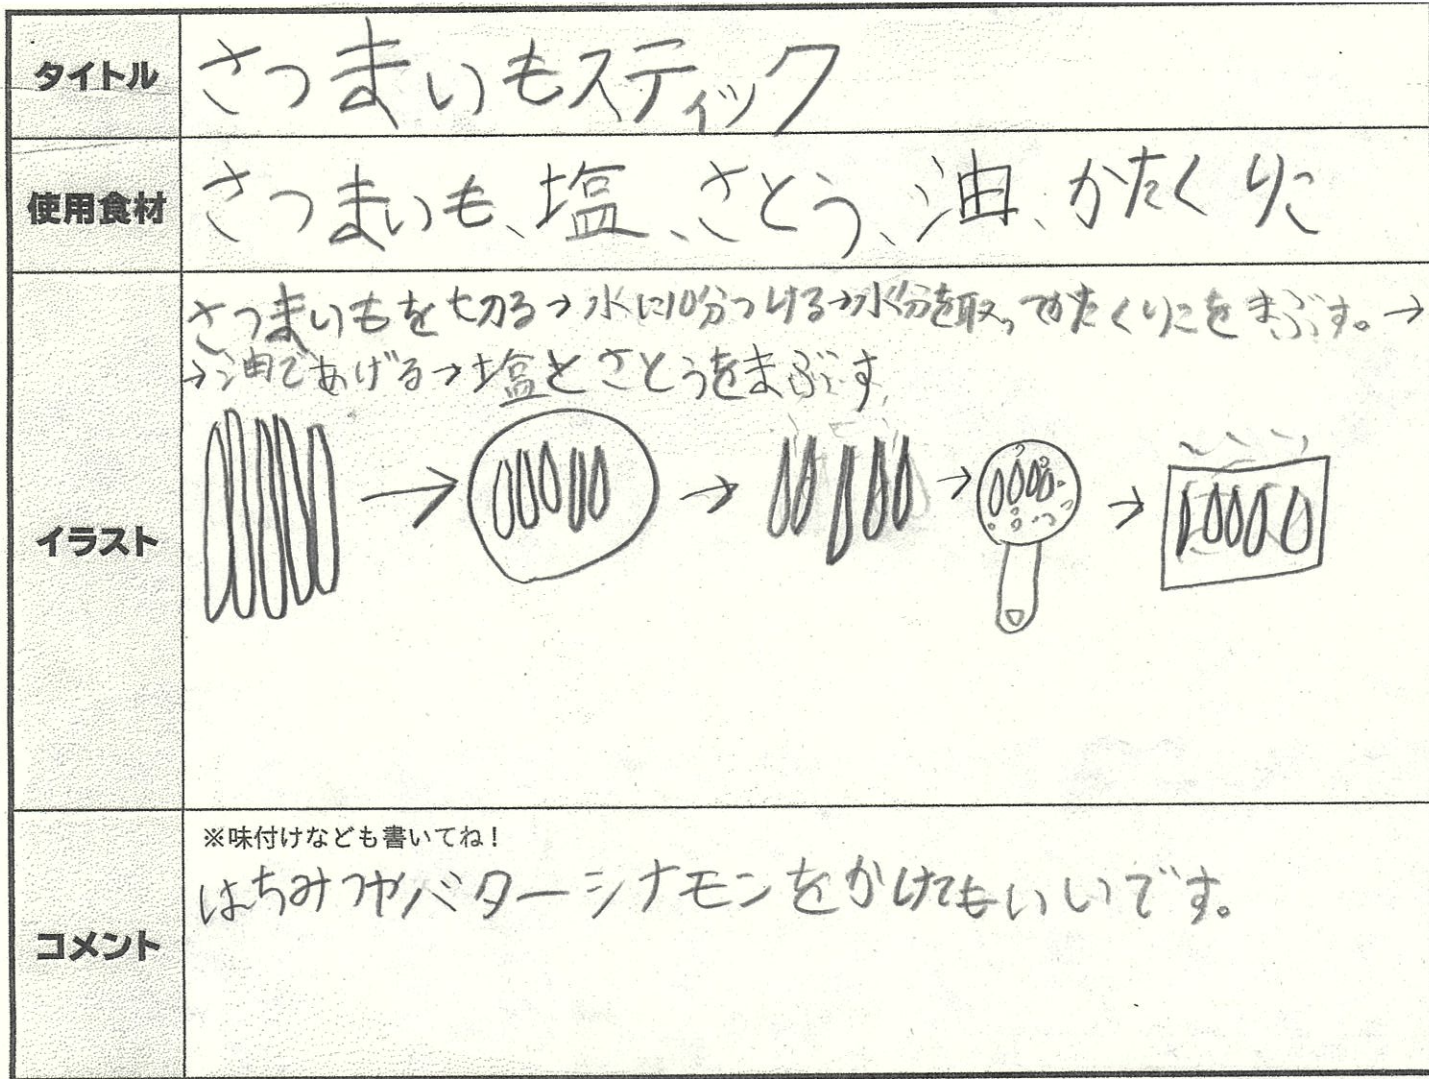 タイトル
さつまいもスティック
使用食材
さつまいも、塩、さとう、油、かたくりこ
イラスト
さつまいもを切る→水に10分つける→水分を取ってかたくりこをまぶす。→
→油であげる→塩とさとうをまぶす
コメント
※味付けなども書いてね!
はちみつやバターシナモンをかけてもいいです。